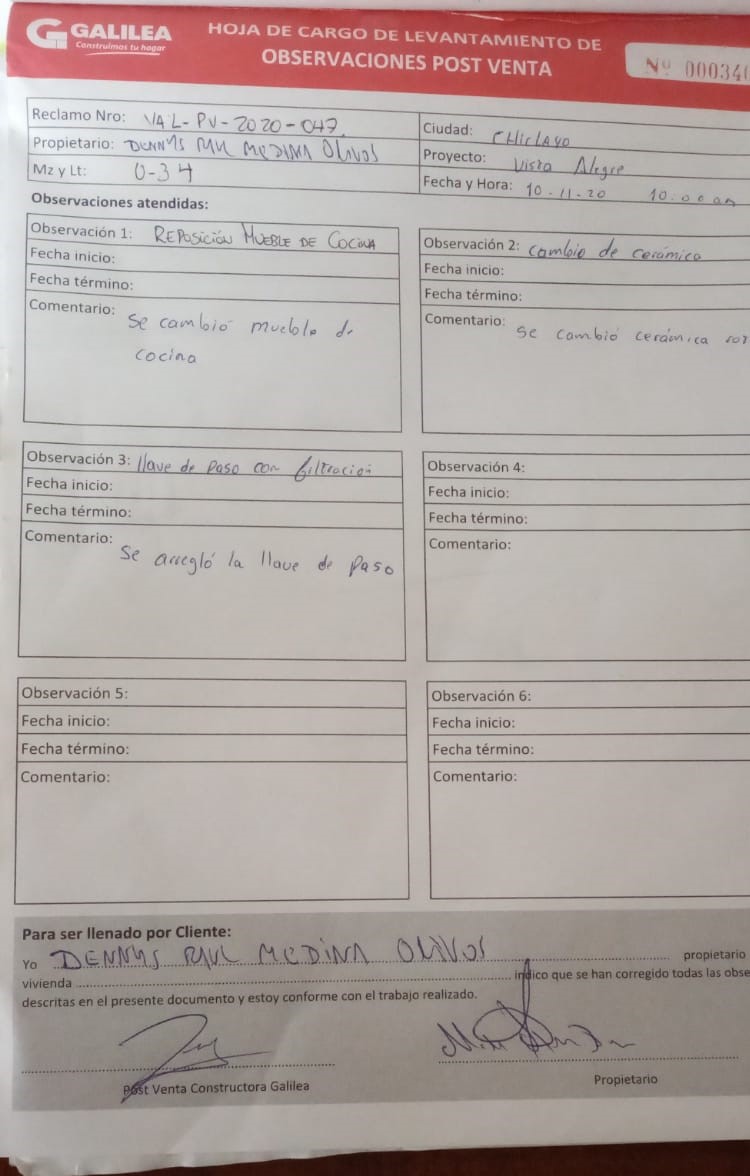 GALILEA
Construimos tu hogar
HOJA DE CARGO DE LEVANTAMIENTO DE
OBSERVACIONES POST VENTA
Nº 000340
Reclamo Nro: VAL-PV-2020-047
Propietario: DENNYS RAUL MEDINA OLIVOS
Mz y Lt: U-34
Ciudad: CHICLAYO
Proyecto: Vista Alegre
Fecha y Hora: 10-11-20 10:00 am
Observaciones atendidas:
Observación 1: REPOSICIÓN MUEBLE DE COCINA
Fecha inicio:
Fecha término:
Comentario: Se cambió mueble de
cocina
Observación 2: cambio de cerámica
Fecha inicio:
Fecha término:
Comentario: Se cambió cerámica
Observación 3: llave de paso con filtración
Fecha inicio:
Fecha término:
Comentario: Se arregló la llave de paso
Observación 4:
Fecha inicio:
Fecha término:
Comentario:
Observación 5:
Fecha inicio:
Fecha término:
Comentario:
Observación 6:
Fecha inicio:
Fecha término:
Comentario:
Para ser llenado por Cliente:
Yo DENNYS RAUL MEDINA OLIVOS propietario
vivienda indico que se han corregido todas las obse
descritas en el presente documento y estoy conforme con el trabajo realizado.
Post Venta Constructora Galilea
Propietario